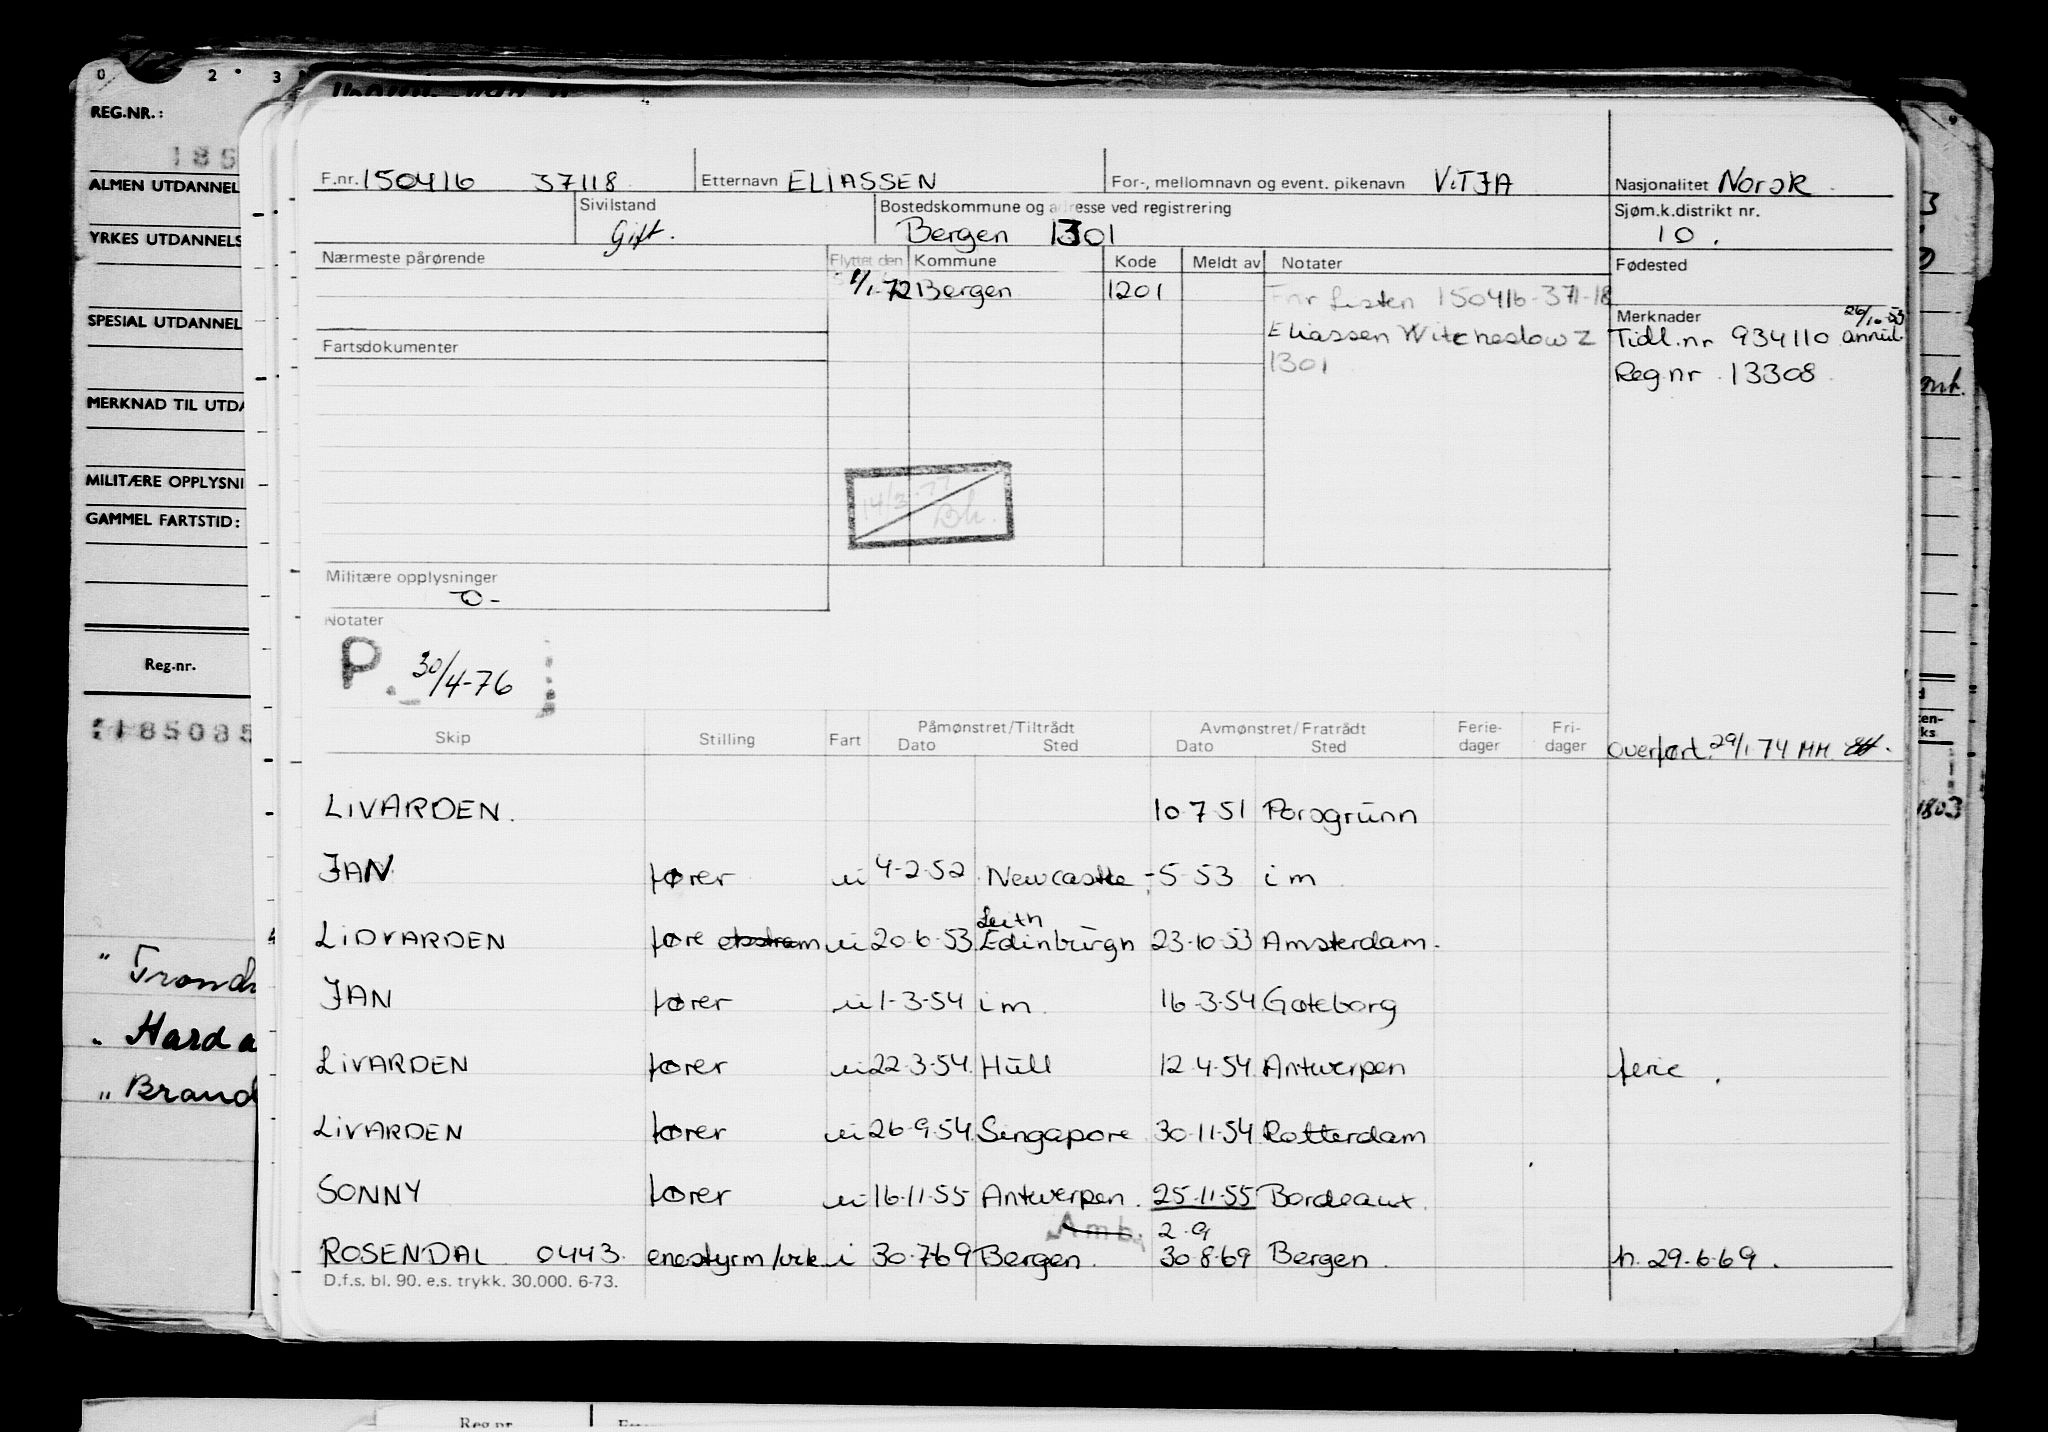 0 2 3
REG.NR.:
185
ALMEN UTDANNEL
YRKES UTDANNELS
SPESIAL UTDANNEL
MERKNAD TIL UTDA
MILITÆRE OPPLYSNI
GAMMEL FARTSTID:
Reg.nr.
185085
" Trondh
" Harda
" Brand
F.nr. 150416 37118 Etternavn ELIASSEN For-, mellomnavn og event. pikenavn VITJA Nasjonalitet Norsk
Sivilstand Gift. Bostedskommune og adresse ved registrering Bergen 1301 Sjøm.k.distrikt nr. 10.
Nærmeste pårørende Flyttet den Kommune Kode Meldt av Notater Fødested
1/1-72 Bergen 1201 Fnr listen 150416-371-18
Eliassen Witcheslow Z
1301
Merknader 26/10-53
Tidl.nr 934110 annul.
Reg nr 13308
Fartsdokumenter
14/3-77
Bh.
Militære opplysninger
-0-
Notater
P. 30/4-76
Skip Stilling Fart Påmønstret/Tiltrådt Dato Sted Avmønstret/Fratrådt Dato Sted Ferie-dager Fri-dager Overført 29/1 74 MM
LIVARDEN. 10-7-51 Porsgrunn
JAN fører ui 4-2-52 Newcastle -5-53 i m
LIDVARDEN føre ekstram ui 20-6-53 Leith Edinburgh 23-10-53 Amsterdam.
JAN fører ui 1-3-54 i m 16-3-54 Gøteborg
LIVARDEN fører ui 22-3-54 Hull 12-4-54 Antwerpen ferie.
LIVARDEN fører ui 26-9-54 Singapore 30-11-54 Rotterdam
SONNY fører ui 16-11-55 Antwerpen. 25-11-55 Bordeaux.
Amb. 2-9
ROSENDAL 0443 enestyrm/vik i 30-7-69 Bergen. 30-8-69 Bergen. h. 29-6-69.
D.f.s. bl. 90. e.s. trykk. 30.000. 6-73.
1803
Reg.nr.